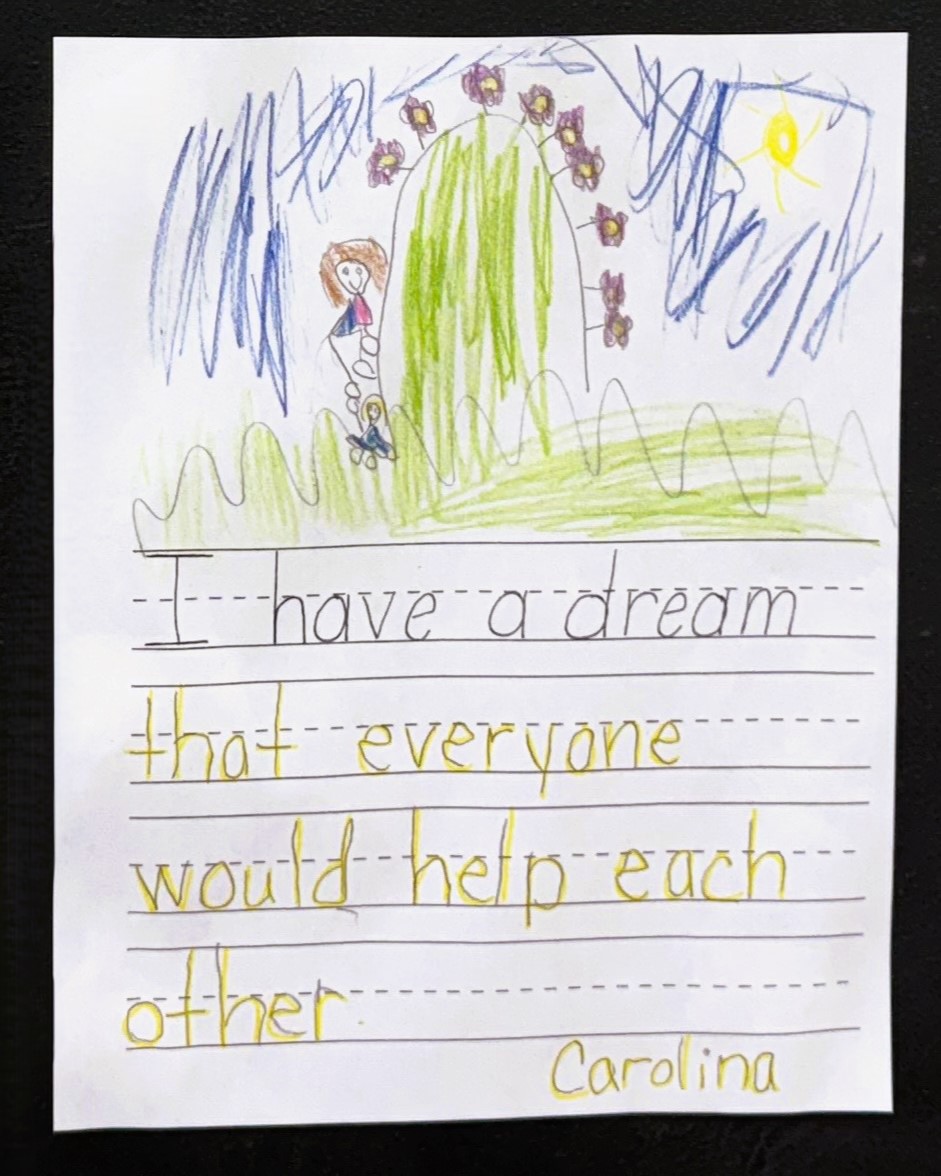 I have a dream
that everyone
would help each
other
Carolina